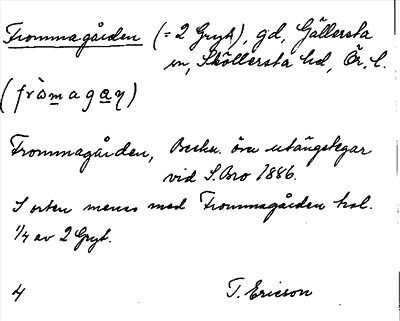 Frommagården (= 2 Gryt), gd, Gällersta
sn, Sköllersta hd, Ör. l.
(fròmagaṇ)
Frommagården, Beskr. över utängslegar
vid S. Bro 1886.
I orten menas med Frommagården hel.
1/4 av 2 Gryt.
4 T. Ericson